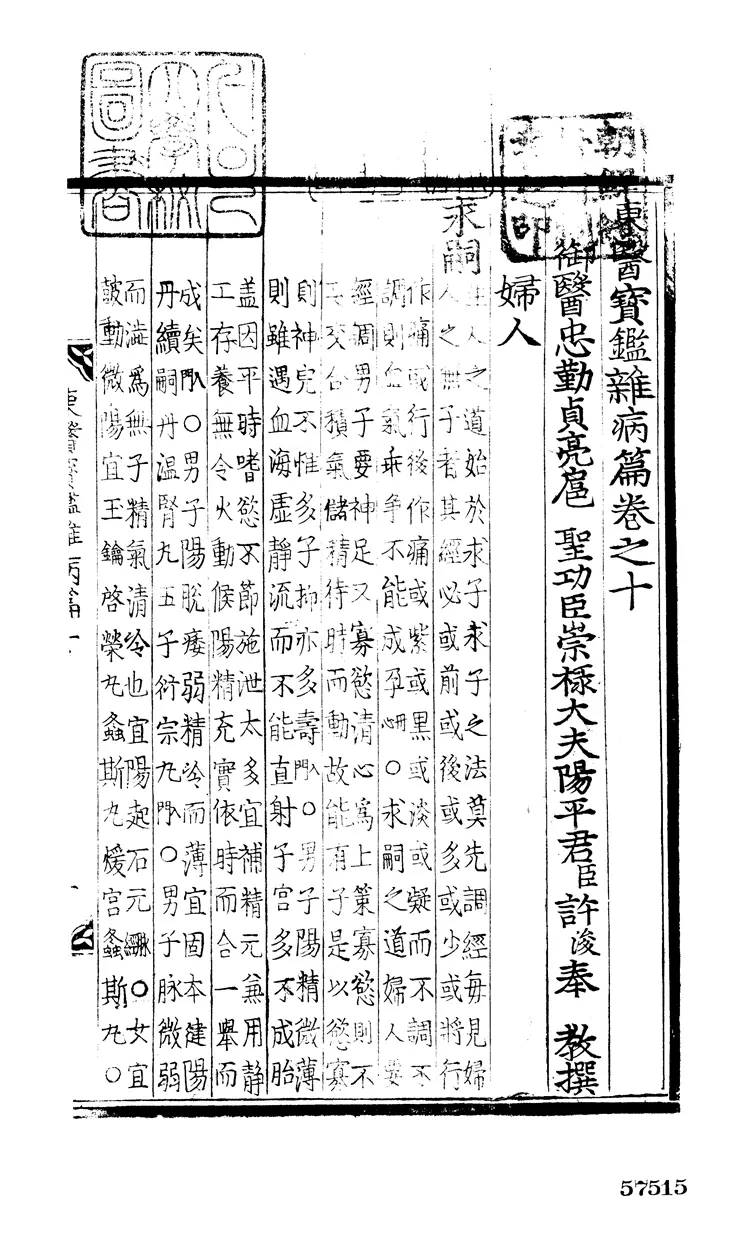 東醫寶鑑雜病篇卷之十
御醫忠勤貞亮扈 聖功臣崇祿大夫陽平君臣許浚奉 教撰
婦人
求嗣
生人之道始於求子求子之法莫先調經每見婦
人之無子者其經必或前或後或多或少或將行
作痛或行後作痛或紫或黑或淡或凝而不調不
調則血氣乖争不能成孕丹心○求嗣之道婦人要
經調男子要神足又寡慾清心爲上策寡慾則不
妄交合積氣儲精待時而動故能有子是以慾寡
則神完不惟多子抑亦多壽入門○男子陽精微薄
則雖遇血海虛靜流而不能直射子宮多不成胎
盖因平時嗜慾不節施泄太多宜補精元兼用静
工存養無令火動候陽精充實依時而合一舉而
成矣入門○男子陽脫痿弱精冷而薄宜固本健陽
丹續嗣丹溫腎丸五子衍宗丸入門○男子脉微弱
而澁爲無子精氣清冷也宜陽起石元脉經○女宜
皷動微陽宜玉鑰啓榮丸螽斯丸煖宮螽斯丸○
東醫寶鑑雜病篇十
57515